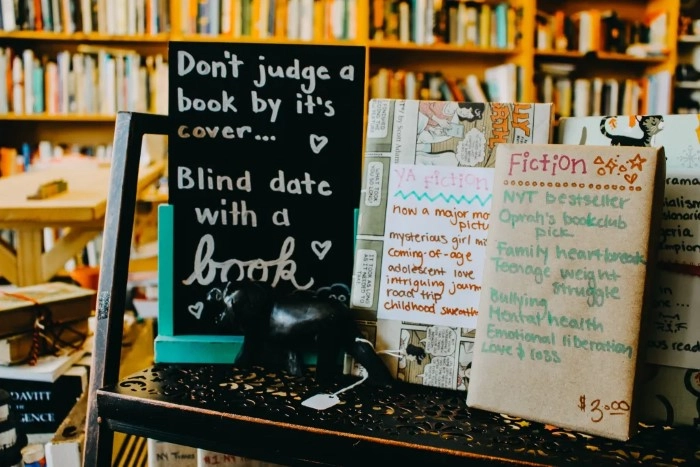 Don't judge a
book by it's
cover...
Blind date
with a
book
YA fiction
now a major mo
pictu
mysterious girl mi
Coming-of-age
adolescent love
intriguing journ
road trip
childhood sweethe
Fiction
NYT bestseller
Oprah's bookclub
pick
Family heartbreak
Teenage weight
struggle
Bullying
Mental health
Emotional liberation
Love & loss
$3.00
DAVITT
GENCE